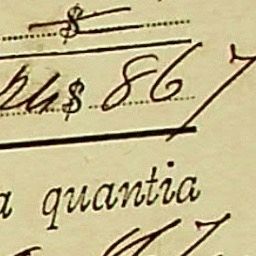 $
Rs $ 867
a quantia